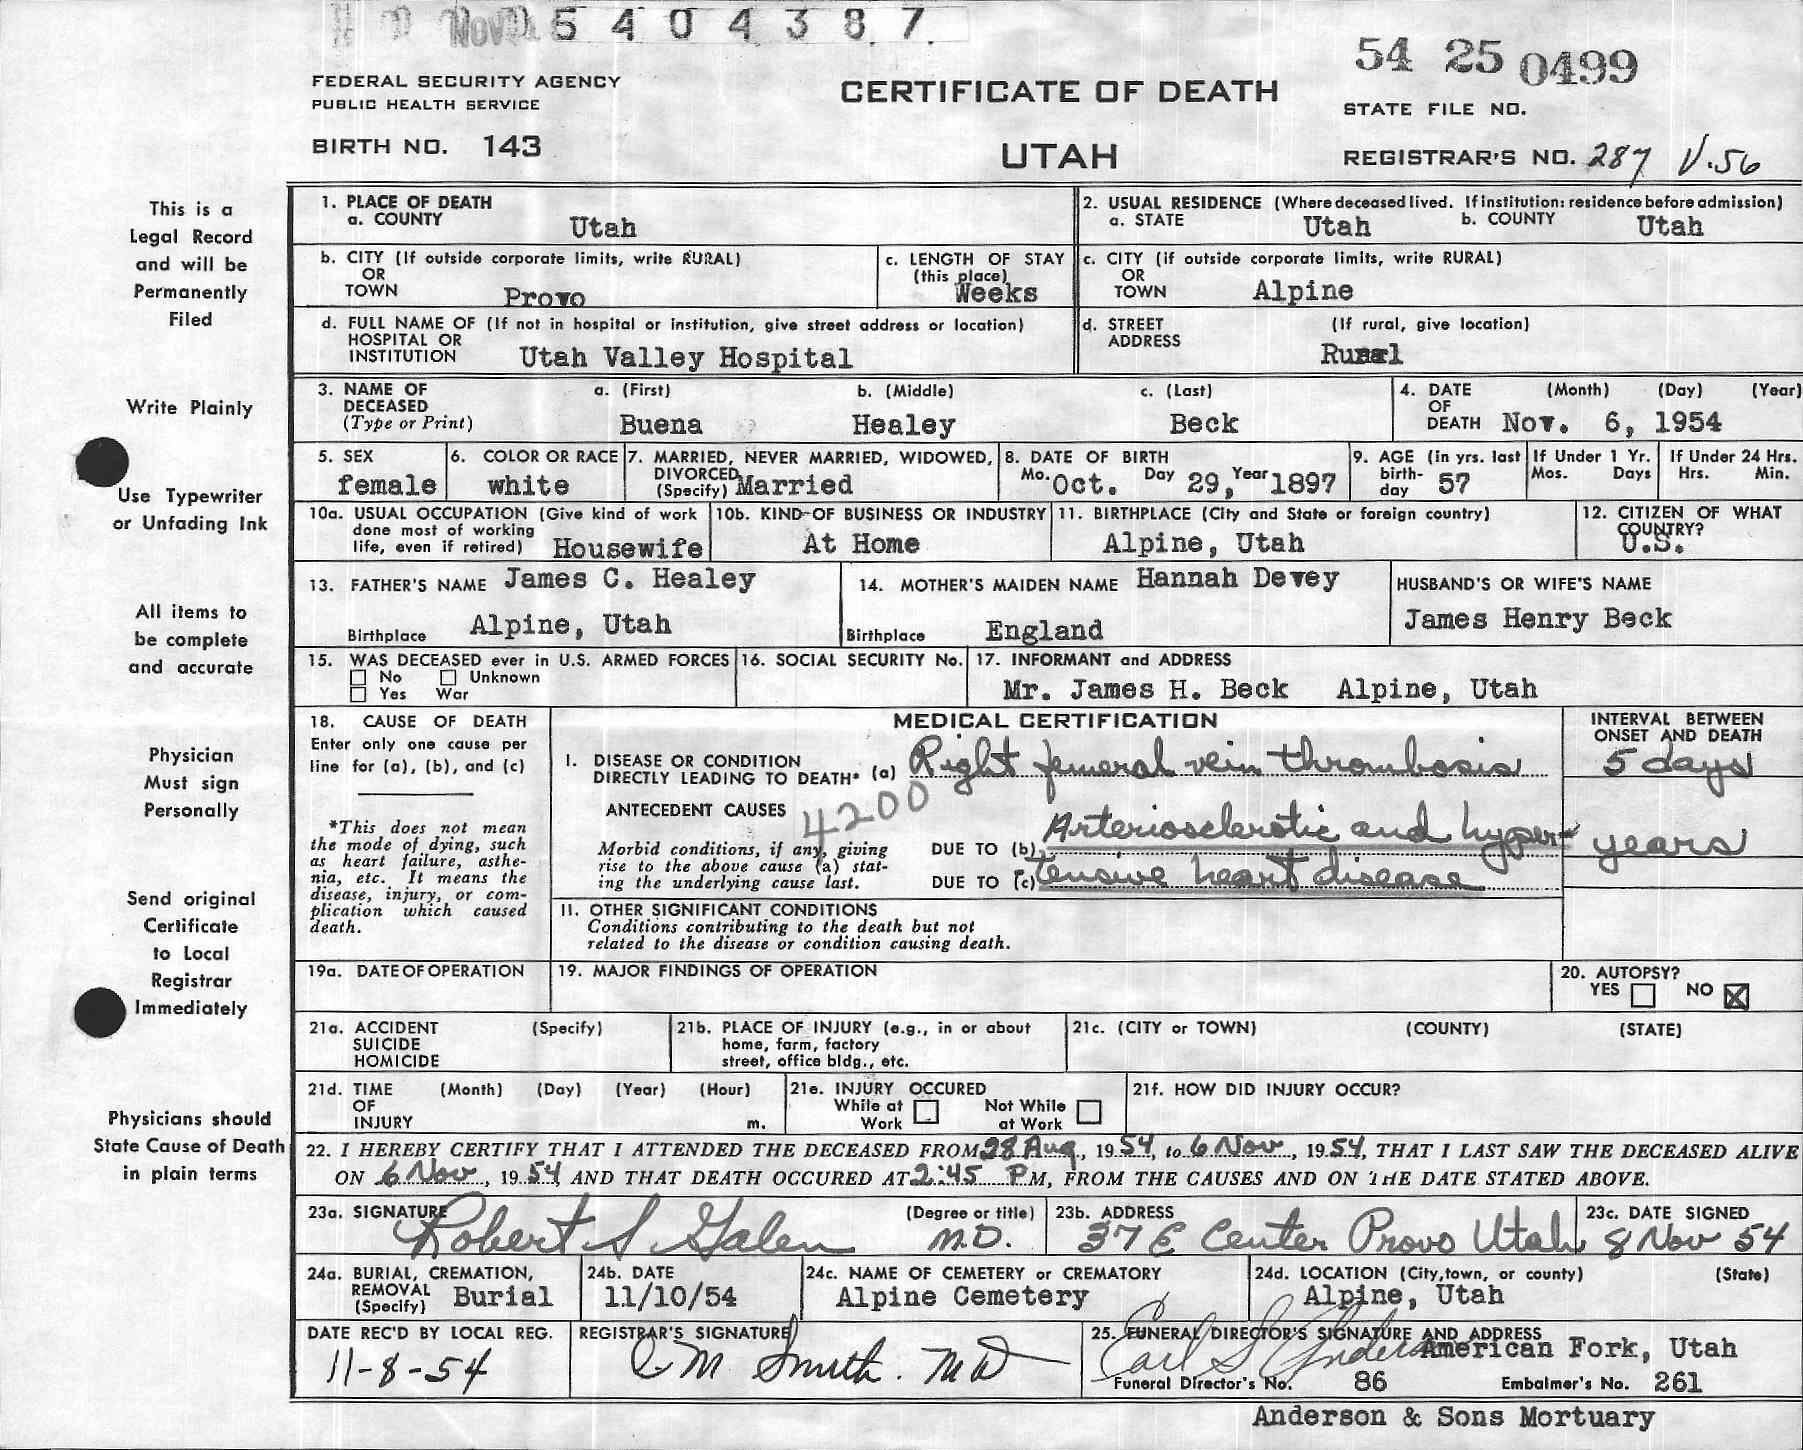 Nov 5 4 0 4 3 8 7
54 25 0499
FEDERAL SECURITY AGENCY
PUBLIC HEALTH SERVICE
CERTIFICATE OF DEATH
STATE FILE NO.
BIRTH NO. 143
UTAH
REGISTRAR'S NO. 287 V.56
This is a
Legal Record
and will be
Permanently
Filed
Write Plainly
Use Typewriter
or Unfading Ink
All items to
be complete
and accurate
Physician
Must sign
Personally
Send original
Certificate
to Local
Registrar
Immediately
Physicians should
State Cause of Death
in plain terms
1. PLACE OF DEATH
a. COUNTY Utah
2. USUAL RESIDENCE (Where deceased lived. If institution: residence before admission)
a. STATE Utah b. COUNTY Utah
b. CITY (If outside corporate limits, write RURAL)
OR
TOWN Provo
c. LENGTH OF STAY
(this place)
Weeks
c. CITY (if outside corporate limits, write RURAL)
OR
TOWN Alpine
d. FULL NAME OF (If not in hospital or institution, give street address or location)
HOSPITAL OR
INSTITUTION Utah Valley Hospital
d. STREET (If rural, give location)
ADDRESS
Rural
3. NAME OF a. (First) b. (Middle) c. (Last)
DECEASED
(Type or Print) Buena Healey Beck
4. DATE (Month) (Day) (Year)
OF
DEATH Nov. 6, 1954
5. SEX
female
6. COLOR OR RACE
white
7. MARRIED, NEVER MARRIED, WIDOWED,
DIVORCED
(Specify) Married
8. DATE OF BIRTH
Mo. Oct. Day 29, Year 1897
9. AGE (in yrs. last
birth-
day 57
If Under 1 Yr.
Mos. Days
If Under 24 Hrs.
Hrs. Min.
10a. USUAL OCCUPATION (Give kind of work
done most of working
life, even if retired) Housewife
10b. KIND OF BUSINESS OR INDUSTRY
At Home
11. BIRTHPLACE (City and State or foreign country)
Alpine, Utah
12. CITIZEN OF WHAT
COUNTRY?
U.S.
13. FATHER'S NAME James C. Healey
Birthplace Alpine, Utah
14. MOTHER'S MAIDEN NAME Hannah Devey
Birthplace England
HUSBAND'S OR WIFE'S NAME
James Henry Beck
15. WAS DECEASED ever in U.S. ARMED FORCES
No Unknown
Yes War
16. SOCIAL SECURITY No.
17. INFORMANT and ADDRESS
Mr. James H. Beck Alpine, Utah
18. CAUSE OF DEATH
Enter only one cause per
line for (a), (b), and (c)
*This does not mean
the mode of dying, such
as heart failure, asthe-
nia, etc. It means the
disease, injury, or com-
plication which caused
death.
MEDICAL CERTIFICATION
INTERVAL BETWEEN
ONSET AND DEATH
I. DISEASE OR CONDITION
DIRECTLY LEADING TO DEATH* (a) Right femeral vein thrombosis 5 days
ANTECEDENT CAUSES 4200
Morbid conditions, if any, giving
rise to the above cause (a) stat-
ing the underlying cause last.
DUE TO (b) Arteriosclerotic and hyper- years
DUE TO (c) tensive heart disease
II. OTHER SIGNIFICANT CONDITIONS
Conditions contributing to the death but not
related to the disease or condition causing death.
19a. DATE OF OPERATION
19. MAJOR FINDINGS OF OPERATION
20. AUTOPSY?
YES NO X
21a. ACCIDENT (Specify)
SUICIDE
HOMICIDE
21b. PLACE OF INJURY (e.g., in or about
home, farm, factory
street, office bldg., etc.
21c. (CITY or TOWN) (COUNTY) (STATE)
21d. TIME (Month) (Day) (Year) (Hour)
OF
INJURY m.
21e. INJURY OCCURED
While at Not While
Work at Work
21f. HOW DID INJURY OCCUR?
22. I HEREBY CERTIFY THAT I ATTENDED THE DECEASED FROM 28 Aug., 1954, to 6 Nov, 1954, THAT I LAST SAW THE DECEASED ALIVE
ON 6 Nov, 1954 AND THAT DEATH OCCURED AT 2:45 P M, FROM THE CAUSES AND ON THE DATE STATED ABOVE.
23a. SIGNATURE (Degree or title)
Robert S Galen M.D.
23b. ADDRESS
37 E Center Provo Utah
23c. DATE SIGNED
8 Nov 54
24a. BURIAL, CREMATION,
REMOVAL
(Specify) Burial
24b. DATE
11/10/54
24c. NAME OF CEMETERY or CREMATORY
Alpine Cemetery
24d. LOCATION (City, town, or county) (State)
Alpine, Utah
DATE REC'D BY LOCAL REG.
11-8-54
REGISTRAR'S SIGNATURE
M Smith. MD
25. FUNERAL DIRECTOR'S SIGNATURE AND ADDRESS
Earl S Anderson American Fork, Utah
Funeral Director's No. 86 Embalmer's No. 261
Anderson & Sons Mortuary